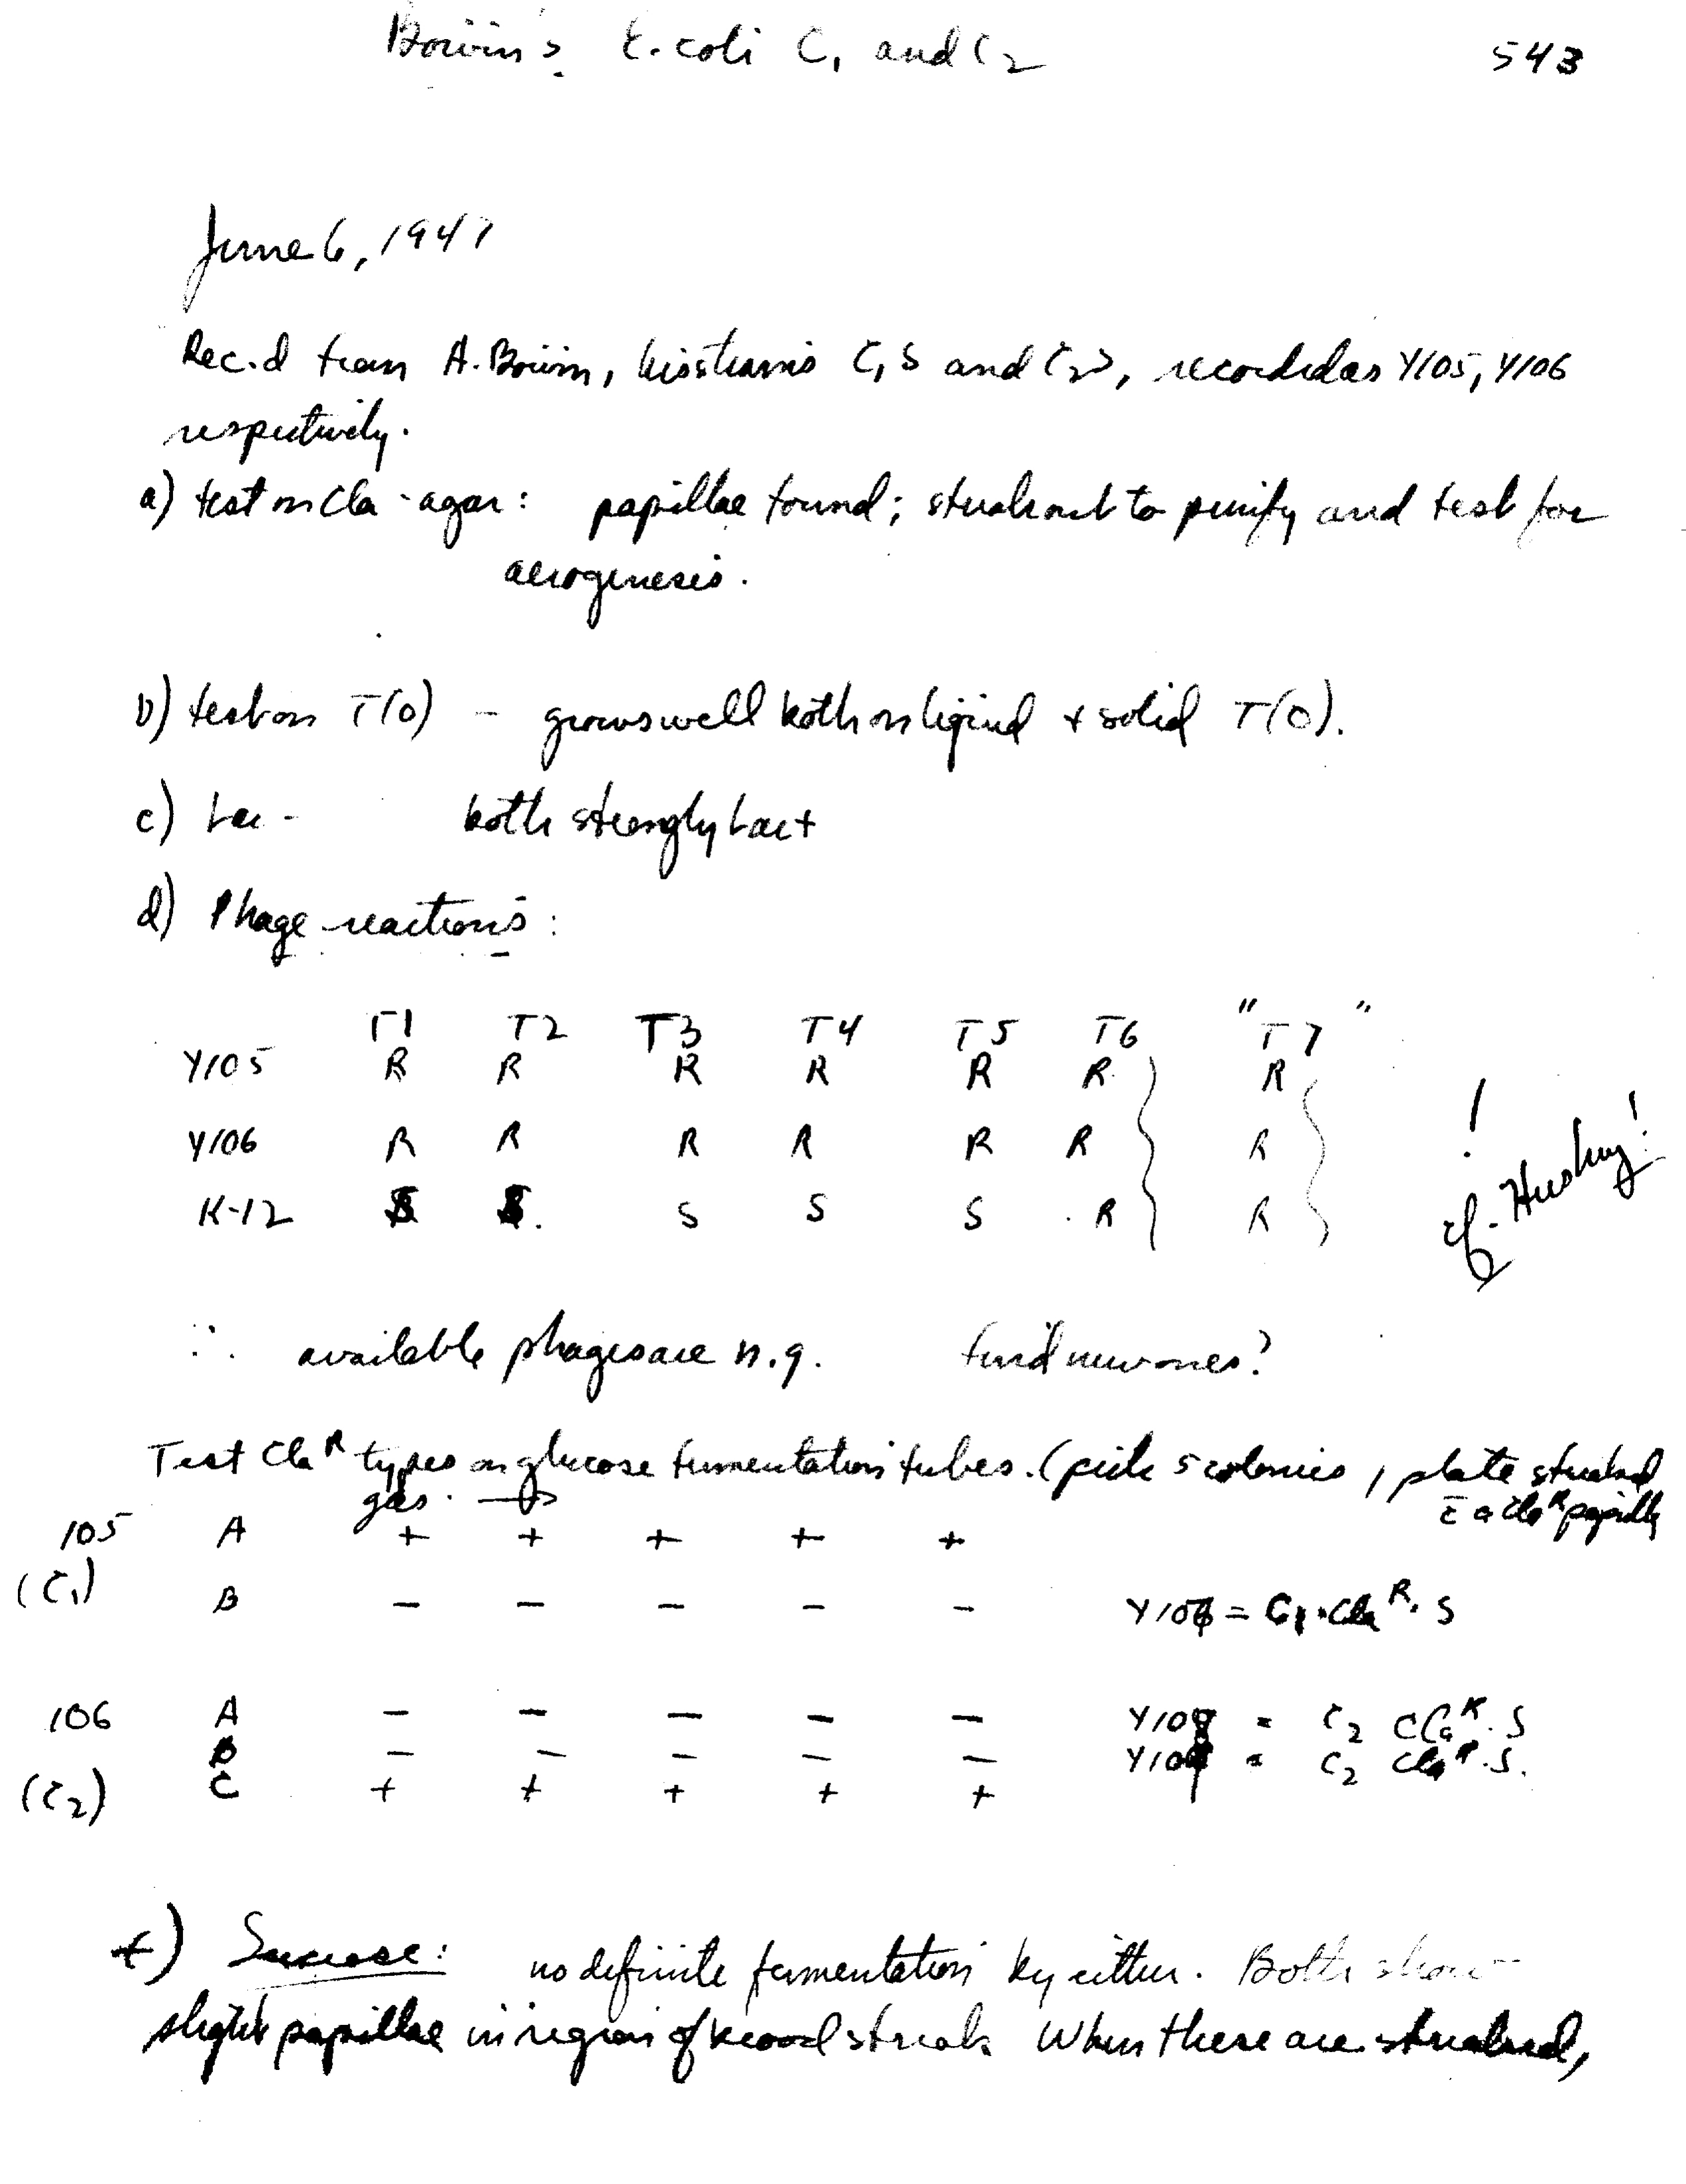 Boivin's E. coli C1 and C2 543
June 6, 1947
Rec.d from A. Boivin, his strains C1S and C2S, recorded as Y105, Y106
respectively.
a) test on Cla - agar: papillae found; streak out to purify and test for
aerogenesis.
b) test on T(0) - grows well both on liquid + solid T(0).
c) Lac - both strongly Lac+
d) Phage reactions:
T1 T2 T3 T4 T5 T6 "T7"
Y105 R R R R R R R
Y106 R R R R R R R !
K-12 S S. S S S R R cf. Hershey!
∴ available phages are n.g. find new ones?
Test Cla^R types on glucose fermentation tubes. (pick 5 colonies, plate streaked
gas. → c̄ a Cla^R papilla
105 A + + + + +
(C1) B - - - - - = C1·Cla^R. S
106 A - - - - - = C2 Cla^R. S
B - - - - - = C2 Cla^R. S.
(C2) C + + + + +
Sucrose: no definite fermentation by either. Both show
slight papillae in region of broad streak. When these are streaked,